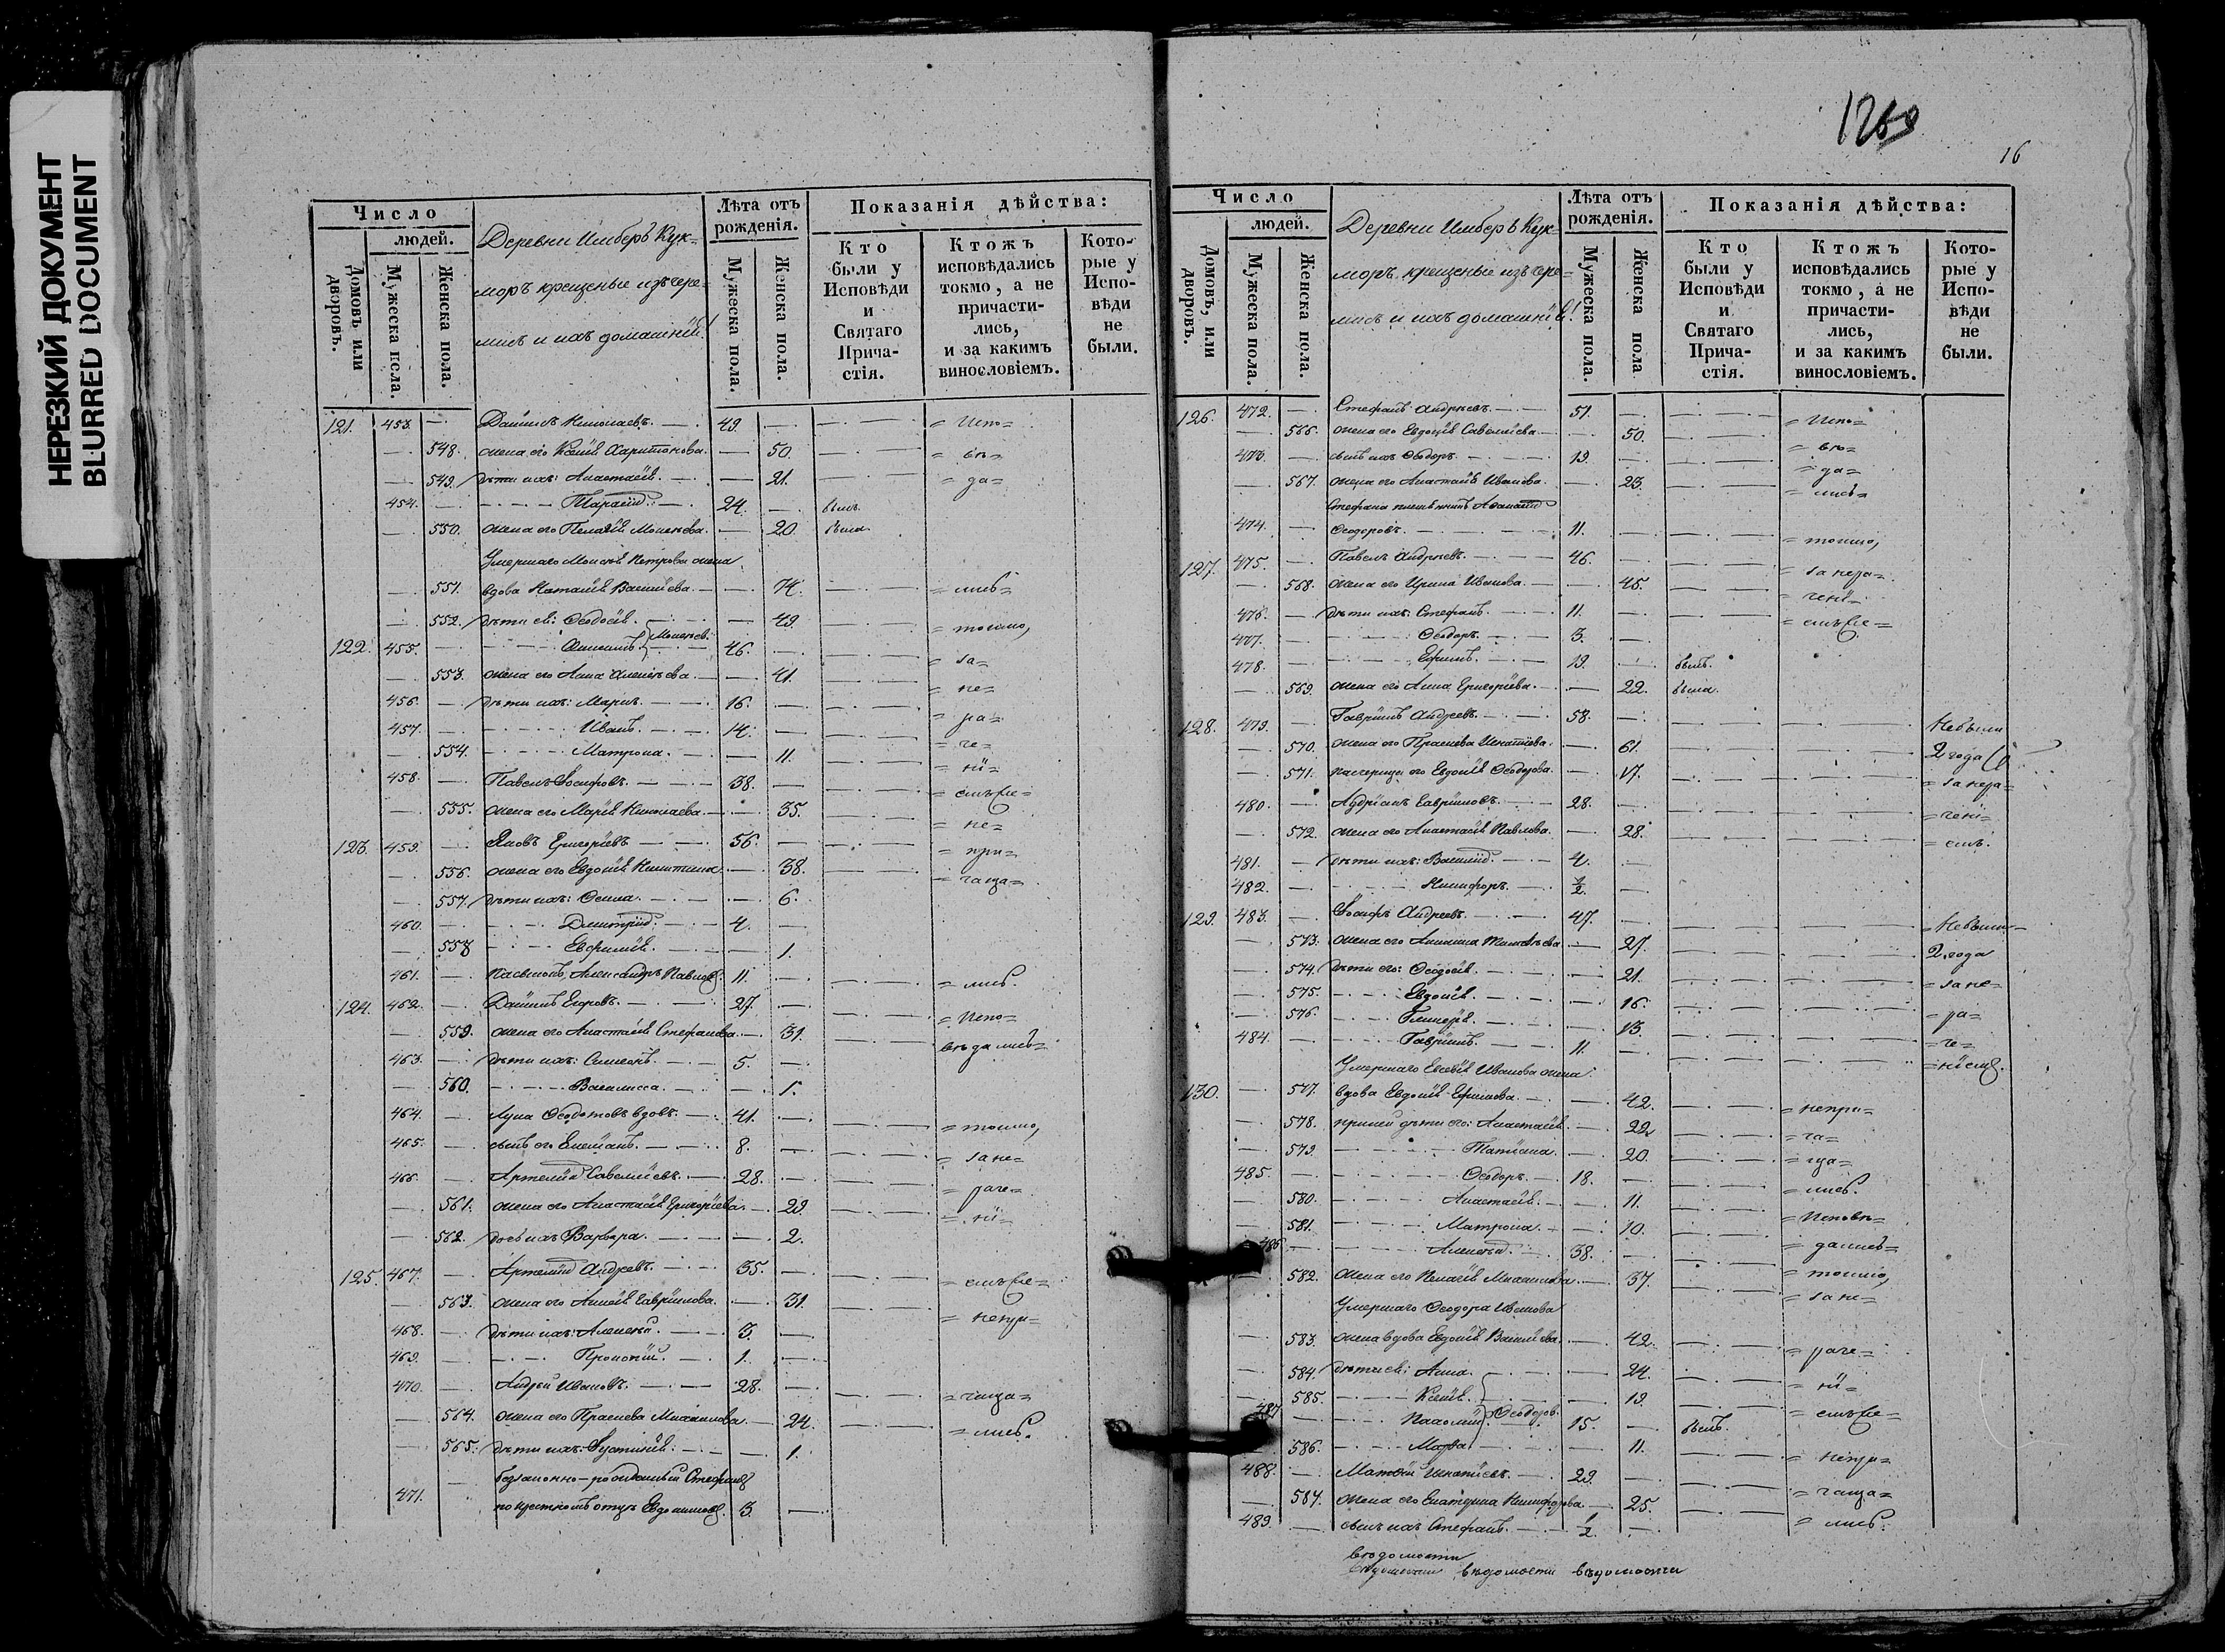 НЕРЕЗКИЙ ДОКУМЕНТ
BLURRED DOCUMENT
Число
людей.
Домовъ, или дворовъ.
Мужеска пола.
Женска пола.
Деревни Имберъ Кук-
моръ крещеные изъ чере-
мисъ и ихъ домашніи!
Лѣта отъ рожденія.
Мужеска пола.
Женска пола.
Показанія дѣйства:
Кто были у Исповѣди и Святаго Прича-стія.
Ктожъ исповѣдались токмо, а не причасти-лись, и за какимъ винословіемъ.
Кото-рые у Испо-вѣди не были.
121. 453. — Даніилъ Николаевъ. — 49. — = Испо=
— 548. жена его Ксенія Харитонова. — 50. = вѣ=
— 549. дѣти ихъ: Анастасія. — 21. = да=
454. — Тарасій. — 24. — былъ
— 550. жена его Пелагія Моисеева. — 20. была
Умершаго Моисея Петрова жена
— 551. вдова Наталія Васильева. — 74. = лись=
— 552. дѣти ея: Ѳеодосія. — 49. = токмо,
122. 455. — Моисеев. — 46. — = за=
— 553. жена его Анна Алексѣева. — 41. = не=
456. — дѣти ихъ: Маркъ. — 16. — = ра=
457. — Иванъ. — 14. — = че=
— 554. Матрона. — 11. = ні=
458. — Павелъ Іосифовъ. — 38. — = емъ не=
— 555. жена его Марія Николаева. — 35. = не=
123. 459. — Яковъ Григорьевъ — 56. — = при=
— 556. жена его Евдокія Никитина. — 38. = чаща=
— 557. дѣти ихъ: — 6.
460. — Димитрій. — 4. —
— 558 Евфимія. — 1.
461. — Пасынокъ Александръ Павлов. 11. — = лись.
124. 462. — Даніилъ Егоровъ. — 27. — = Испо=
— 559. жена его Анастасія Стефанова. — 31. вѣдались=
463. — дѣти ихъ: Симеонъ. — 5. —
— 560. Василисса. — 1.
464. — Лука Ѳеодотовъ вдовъ. — 41. — = токмо,
465. — сынъ его — 8. — = за не=
466. — Артемій Савельевъ. — 28. — = раче=
— 561. жена его Анастасія Григорьева. — 29. = ні=
— 562. дочь ихъ Варвара. — 2.
125 467. — Артемій Андреевъ. — 35. — = емъ не=
— 563. жена его Гавріилова. — 31. = непри=
468. — дѣти ихъ: Алексѣй. — 3. —
469. — Прокопій. — 1. —
470. — Андрей Ивановъ. — 28. — = чаща=
— 564. жена его Прасковья Михайлова — 24. = лись.
— 565. дѣти ихъ: Іустинія. — 1.
беззаконно-рожденный Стефанъ
471. по крестномъ отцѣ Евдокимов. 3. —
1260
16
Число
людей.
Домовъ, или дворовъ.
Мужеска пола.
Женска пола.
Деревни Имберъ Кук-
моръ крещеные изъ чере-
мисъ и ихъ домашніи!
Лѣта отъ рожденія.
Мужеска пола.
Женска пола
Показанія дѣйства:
Кто были у Исповѣди и Святаго Прича-стія.
Ктожъ исповѣдались токмо, а не причасти-лись, и за какимъ винословіемъ.
Кото-рые у Испо-вѣди не были.
126. 472. — Стефанъ Андреевъ. — 51. — = Испо=
— 566. жена его Евдокія Савельева. — 50. = вѣ=
473. — сынъ ихъ Ѳеодоръ. — 19. — = да=
— 567. жена его Анастасія Иванова. — 23. = лись=
Стефана племянникъ Аѳанасій
474. — Ѳеодоровъ. — 11. — = токмо,
127. 475. — Павелъ Андреевъ. — 46. — = за нера=
— 568. жена его Ирина Иванова. — 45. = чені=
476. — дѣти ихъ: Стефанъ. — 11. — = емъ не=
477. — Ѳеодоръ. — 3. —
478. — Ефимъ. — 19. — былъ.
— 569. жена его Анна Григорьева. — 22. была.
128. 479. — Гавріилъ Андреевъ. — 58. — Небыли
— 570. жена его Прасковья Игнатьева. — 61. 2 года
— 571. падчерица его Евдокія Ѳеодорова. — 17. = за нера=
480. — Адріанъ Гавріиловъ. — 28. — = чені=
— 572. жена его Анастасія Павлова. — 28. = емъ.
481. — дѣти ихъ: Василій. — 4. —
482. — Никифоръ. — 1/2. —
129. 483. — Іосифъ Андреевъ. — 47. — = Небыли=
— 573. жена его Акилина — 27. 2 года
— 574. дѣти его: Ѳеодосія. — 21. = за не=
— 575. Евдокія. — 16. = ра=
— 576. Гликерія. — 13 = че=
484. — Гавріилъ. — 11. — = ніем.
Умершаго Иванова жена
130. — 577. вдова Евдокія Ефимова. — 42. = непри=
— 578. прижи дѣти его: Анастасія. — 22. = ча=
— 579. Татіана. — 20. = ща=
485. — Ѳеодоръ. — 18. — = лись.
— 580. Анастасія. — 11. = Исповѣ=
— 581. Матрона. — 10. = дались=
486 — Алексѣй. — 38. — = токмо,
— 582. жена его Пелагія Михайлова. — 37. = за не=
Умершаго Ѳеодора Иванова
— 583. жена вдова Евдокія Васильева. — 42. = раче=
— 584. дѣти ея: Анна. — 24. = ні=
— 585. Ксенія. Ѳеодоров. — 19. = емъ не=
487 — Пахомій — 15. — былъ.
— 586. Марѳа. — 11. = непри=
488. — Матвѣй Игнатьевъ. — 29. — = чаща=
— 587. жена его Екатерина Никифорова. — 25. = лись.
489. — сынъ ихъ Стефанъ. — 1/2. —
вѣдомости
вѣдомости вѣдомости